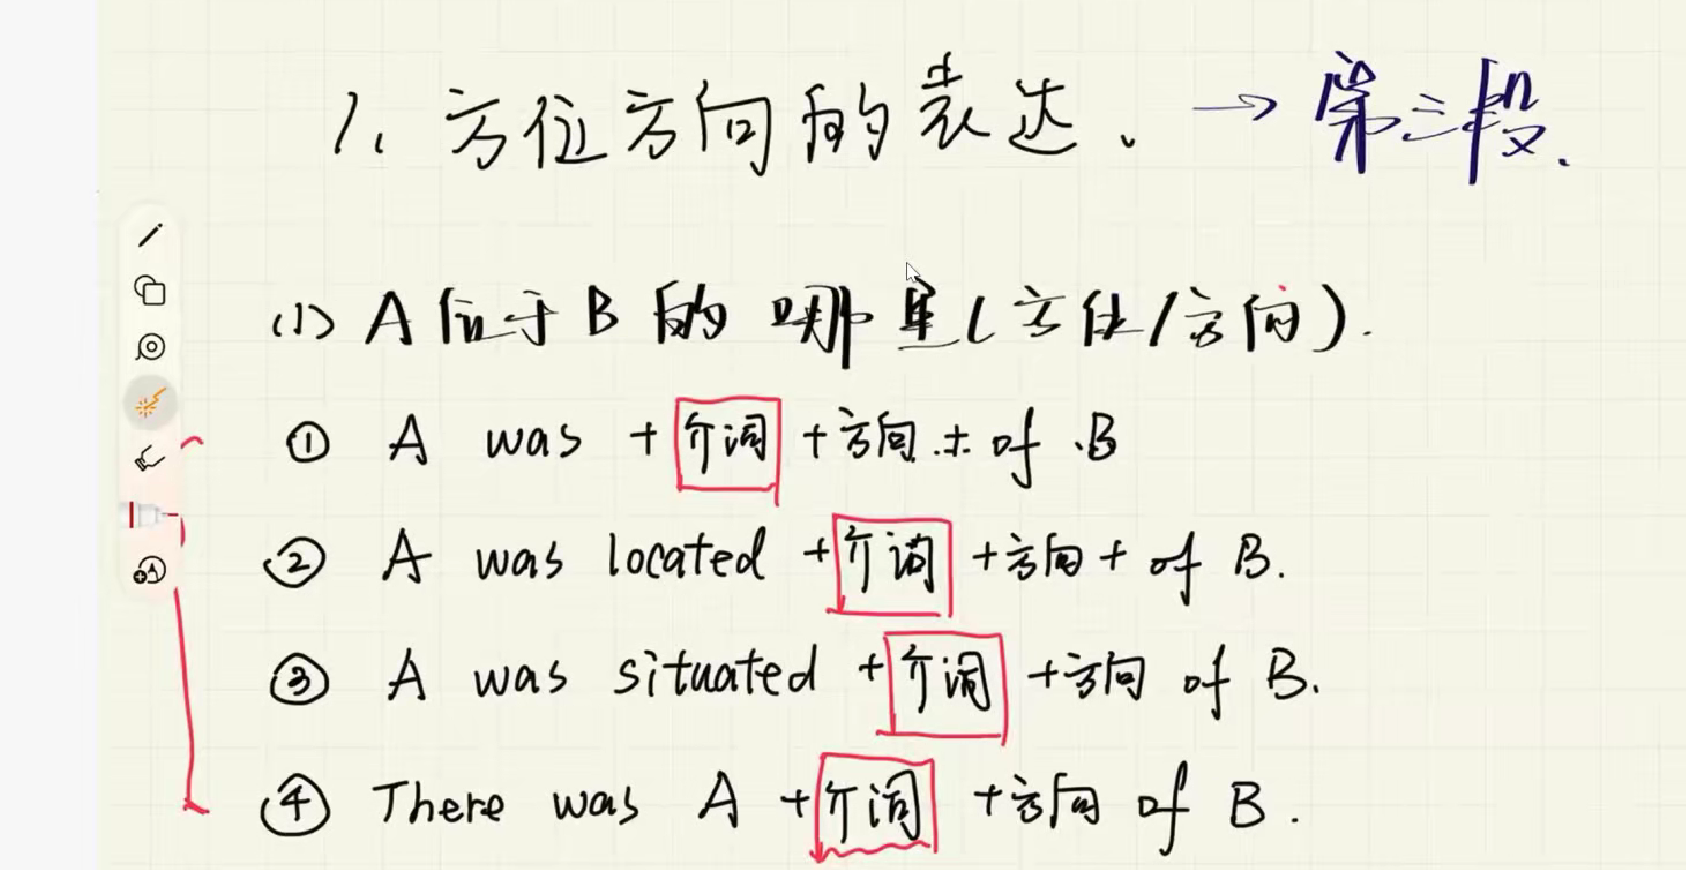 1. 方位方向的表达. → 第三段.
(1) A 位于 B 的 哪里(方位/方向).
① A was + 介词 + 方向 + of B
② A was located + 介词 + 方向 + of B.
③ A was situated + 介词 + 方向 of B.
④ There was A + 介词 + 方向 of B.